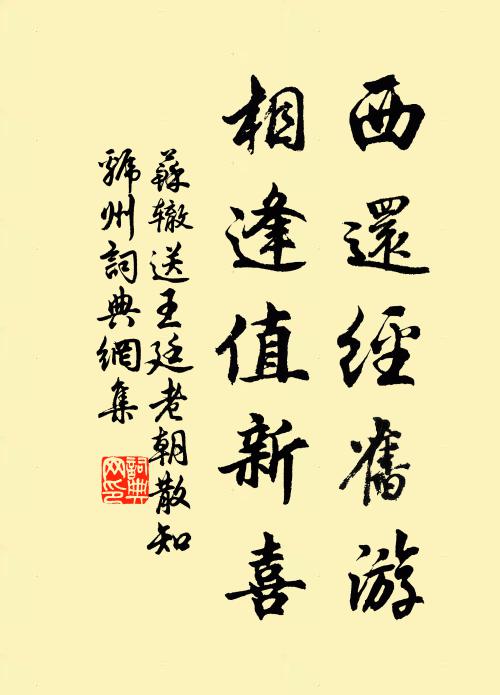 西還經舊游
相逢值新喜
蘇辙送王廷老朝散知
虢州詞典網集
詞典
网印